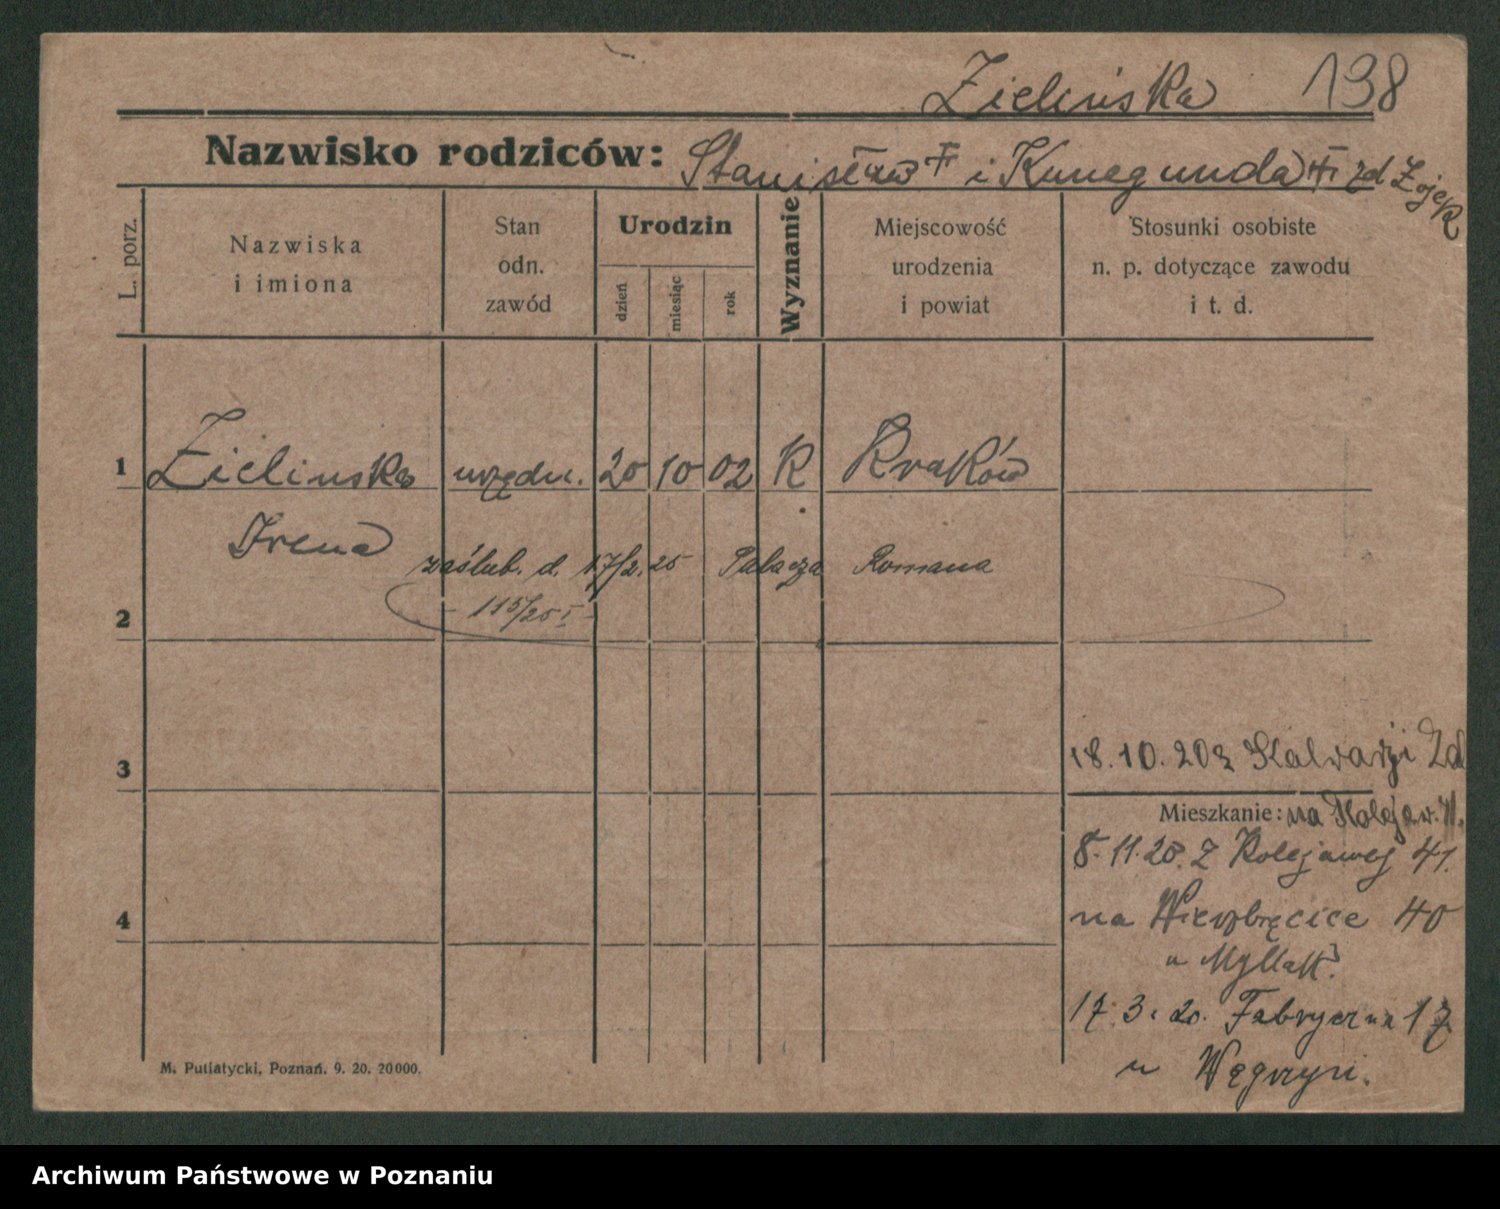 Zielińska 138
Nazwisko rodziców: Stanisław † i Kunegunda † zd Zojek
L. porz.
Nazwiska
i imiona
Stan
odn.
zawód
Urodzin
dzień
miesiąc
rok
Wyznanie
Miejscowość
urodzenia
i powiat
Stosunki osobiste
n. p. dotyczące zawodu
i t. d.
1 Zielinska urzędn. 20 10 02 K Kraków
Irena
zaślub. d. 17/2. 25 Palacza Romana
115/25 I
2
3
18.10.20 z Kalwarji Zd
Mieszkanie: na Kolejow. 41.
8.11.20. z Kolejowej 41.
na Wierzbięcice 40
u
4
17.3. Fabryczna 17
u Węgrzyn.
M. Putiatycki, Poznań. 9. 20. 20000.
Archiwum Państwowe w Poznaniu